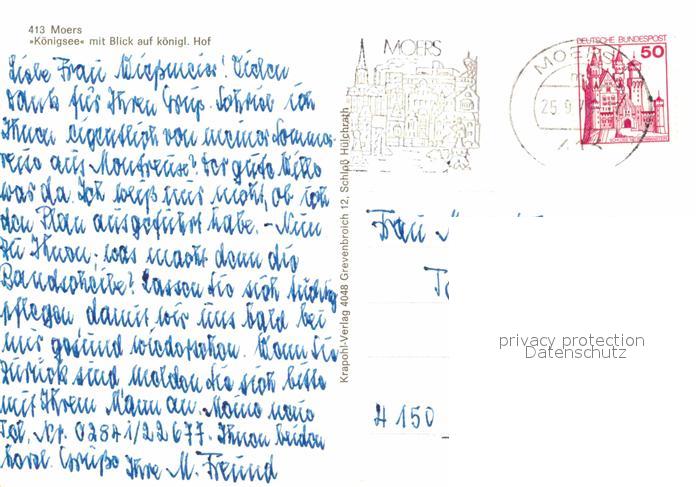 413 Moers
»Königsee« mit Blick auf königl. Hof
Liebe Frau Vielen
Dank für Ihren Gruß. Schrieb ich
Ihnen eigentlich von meiner Sommer-
reise aus Montreux? Der gute Wille
war da. Ich weiß nur nicht, ob ich
den Plan ausgeführt habe. – Nun
zu Ihnen: was macht denn die
Bandscheibe? Lassen Sie sich tüchtig
pflegen, damit wir uns bald bei
mir gesund wiedersehen. Wenn Sie
zurück sind melden Sie sich bitte
mit Ihrem Mann an. Meine neue
Tel. Nr. 02841/22677. Ihnen beiden
herzl. Grüße Ihre M. Freund
Krapohl-Verlag 4048 Grevenbroich 12, Schloß Hülchrath
MOERS
MOERS
25.9.7
DEUTSCHE BUNDESPOST
50
Frau
4150
privacy protection
Datenschutz